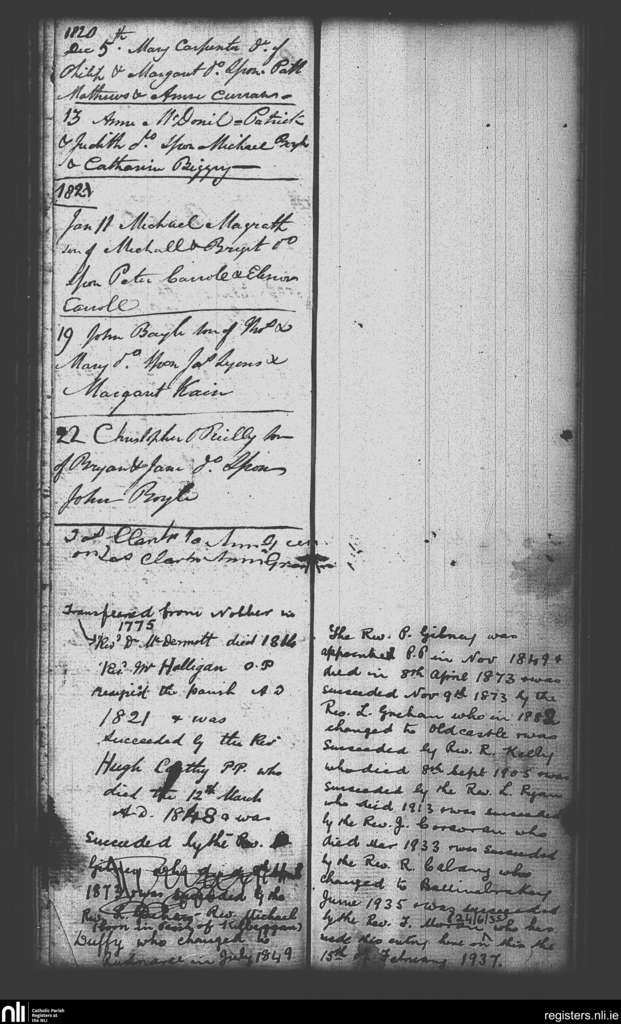 1820
Dec 5th Mary Carpenter Dr. of
Philip & Margaret Do. Spon. Patk
Mathews & Anne Curran
13 Anne McDonil - Patrick
& Judith do. Spon Michael Boyle
& Catharine Biggry
1821
Jan 11 Michael Magrath
son of Michall & Brigt Do
Spon Peter Carrole & Elenor
Carroll
19 John Boyle son of Thos &
Mary do. Spon Jas Lyons &
Margaret Kain
22 Christopher O Reilly son
of Bryan & Jane Do. Spon
John Boyle
Clark to Ann
Clark Ann
Transfeered from Nobber in
1775
Revd Dr McDermott died 1816
Rev. Mr Halligan P.P
the parish A D
1821 & was
succeeded by the Rev
Hugh Carthy P.P. who
died the 12th March
A.D. 1848 & was
succeeded by the Rev. P
Gibney who died 8th April
1873 & was succeeded by the
Rev. Rev. Michael
(Born in Parish of Kilbeggan)
Duffy who changed to
in July 1849
The Rev. P. Gibney was
appointed P.P in Nov 1849 &
died in 8th April 1873 & was
succeeded Nov 9th 1873 by the
Rev. L. Gaughan who in 1882
changed to Oldcastle & was
succeeded by Rev. R. Kelly
who died 8th Sept 1905 & was
succeeded by the Rev. L. Ryan
who died 1913 & was succeeded
by the Rev. J. Corcoran who
died Mar 1933 & was succeeded
by the Rev. R. who
changed to Ballinabrackey
June 1935 & was succeeded
(24/6/35)
by the Rev. F. Moran who has
made this entry here on this the
15th of February 1937.
nli
Catholic Parish
Registers at
the NLI
registers.nli.ie